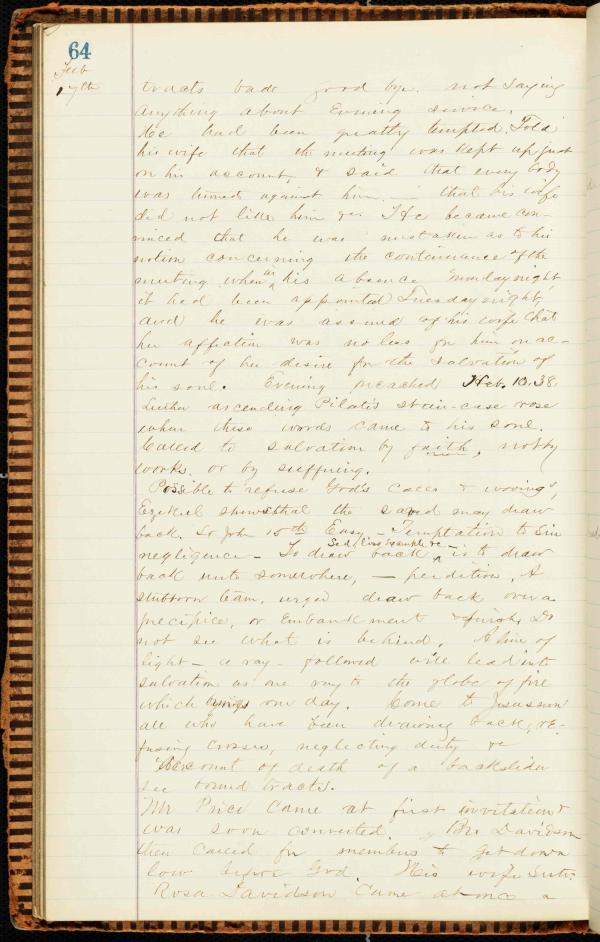 64
Feb
17th
tracts bade good bye. not saying
anything about Evening service.
He had been greatly tempted, Told
his wife that the meeting was kept up just
on his account, & said that every body
was aimed against him. that his wife
did not like him &c. He became con-
vinced that he was mistaken as to his
notion concerning the continuance of the
meeting, when in his absence Monday night
it had been appointed Tuesday night,
and he was assured of his wife that
her affection was no less for him on ac-
count of her desire for the salvation of
his soul. Evening preached Heb. 10.38.
Luther ascending Pilate's stair-case rose
when these words came to his soul.
Called to salvation by faith, not by
works. or by suffering.
Possible to refuse God's calls & wooings,
Ezekiel shows that the saved may draw
back. So John 15th Easy - Temptation to Sin
negligence - To draw back is to draw
back unto somewhere, — perdition. A
stubborn team, urged draw back over a
precipice, or embankment Do
not see what is behind. A line of
light - a ray - followed will lead into
salvation as one ray to the globe of fire
which brings our day. Come to Jesus soon
all who have been drawing back, re-
fusing crosses, neglecting duty &c
Account of death of a backslider
see bound tracts.
Mr Price came at first invitation &
was soon converted. Bro Davidson
then called for members to get down
low before God. His wife Sister
Rosa Davidson came at once a